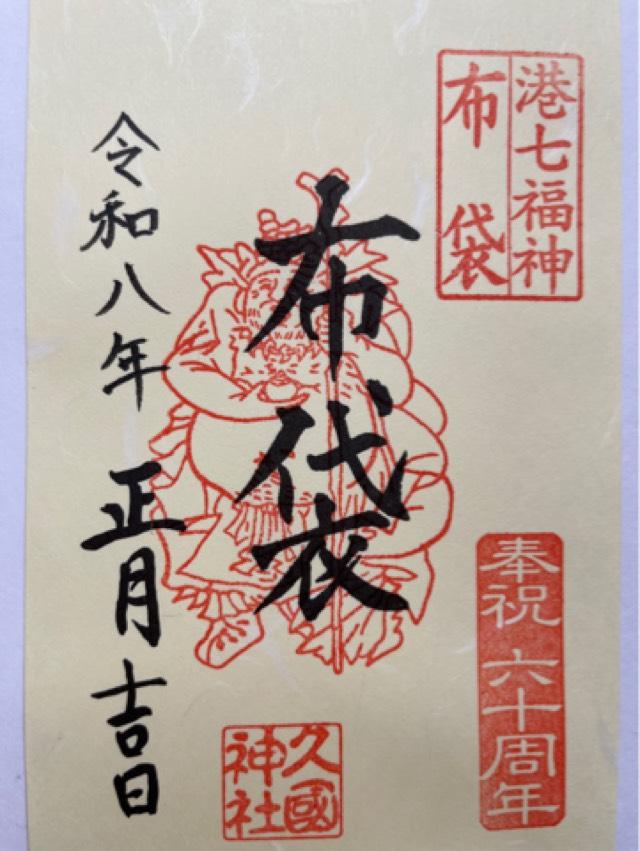 港七福神
布袋
奉祝 六十周年
布袋
久國
神社
令和八年 正月吉日